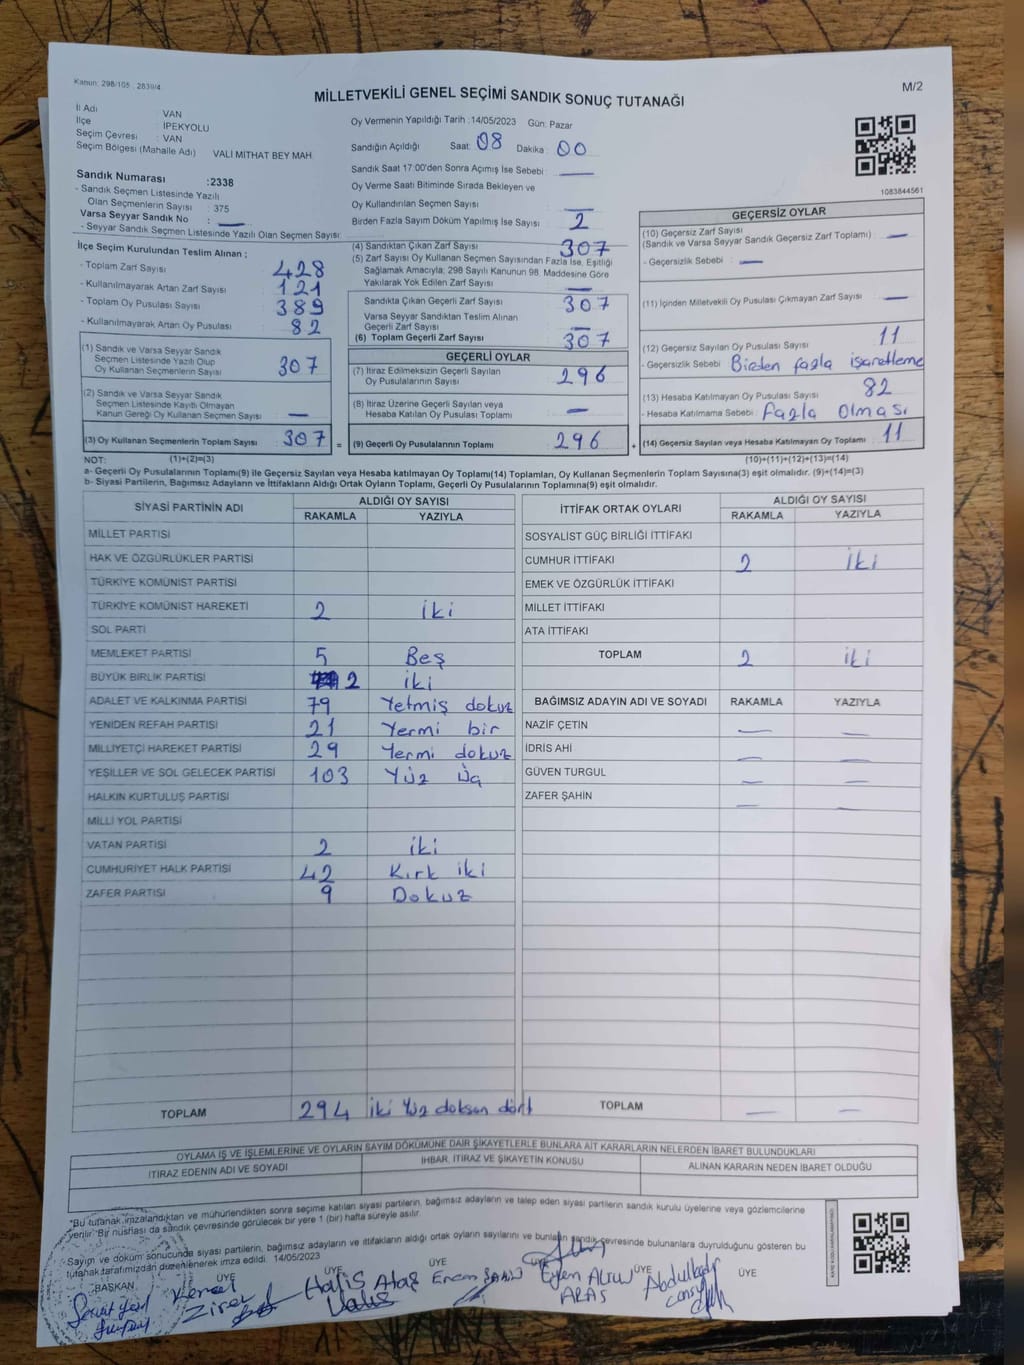 Kanun: 298/105 , 2839/4
M/2
MİLLETVEKİLİ GENEL SEÇİMİ SANDIK SONUÇ TUTANAĞI
İl Adı : VAN
İlçe İPEKYOLU
Seçim Çevresi : VAN
Seçim Bölgesi (Mahalle Adı) VALİ MİTHAT BEY MAH
Sandık Numarası :2338
- Sandık Seçmen Listesinde Yazılı
Olan Seçmenlerin Sayısı : 375
Varsa Seyyar Sandık No : —
- Seyyar Sandık Seçmen Listesinde Yazılı Olan Seçmen Sayısı:
Oy Vermenin Yapıldığı Tarih :14/05/2023 Gün: Pazar
Sandığın Açıldığı Saat: 08 Dakika : 00
Sandık Saat 17:00'den Sonra Açımış İse Sebebi : —
Oy Verme Saati Bitiminde Sırada Bekleyen ve
Oy Kullandırılan Seçmen Sayısı : —
Birden Fazla Sayım Döküm Yapılmış İse Sayısı : 2
1083844561
İlçe Seçim Kurulundan Teslim Alınan ;
- Toplam Zarf Sayısı : 428
- Kullanılmayarak Artan Zarf Sayısı : 121
- Toplam Oy Pusulası Sayısı : 389
- Kullanılmayarak Artan Oy Pusulası : 82
(1) Sandık ve Varsa Seyyar Sandık
Seçmen Listesinde Yazılı Olup
Oy Kullanan Seçmenlerin Sayısı : 307
(2) Sandık ve Varsa Seyyar Sandık
Seçmen Listesinde Kayıtlı Olmayan
Kanun Gereği Oy Kullanan Seçmen Sayısı : —
(3) Oy Kullanan Seçmenlerin Toplam Sayısı : 307 =
(4) Sandıktan Çıkan Zarf Sayısı : 307
(5) Zarf Sayısı Oy Kullanan Seçmen Sayısından Fazla İse, Eşitliği
Sağlamak Amacıyla; 298 Sayılı Kanunun 98. Maddesine Göre
Yakılarak Yok Edilen Zarf Sayısı : —
Sandıkta Çıkan Geçerli Zarf Sayısı : 307
Varsa Seyyar Sandıktan Teslim Alınan
Geçerli Zarf Sayısı : —
(6) Toplam Geçerli Zarf Sayısı : 307
GEÇERLİ OYLAR
(7) İtiraz Edilmeksizin Geçerli Sayılan
Oy Pusulalarının Sayısı : 296
(8) İtiraz Üzerine Geçerli Sayılan veya
Hesaba Katılan Oy Pusulası Toplamı : —
(9) Geçerli Oy Pusulalarının Toplamı : 296 +
GEÇERSİZ OYLAR
(10) Geçersiz Zarf Sayısı
(Sandık ve Varsa Seyyar Sandık Geçersiz Zarf Toplamı) : —
- Geçersizlik Sebebi : —
(11) İçinden Milletvekili Oy Pusulası Çıkmayan Zarf Sayısı : —
(12) Geçersiz Sayılan Oy Pusulası Sayısı : 11
- Geçersizlik Sebebi : Birden fazla işaretleme
(13) Hesaba Katılmayan Oy Pusulası Sayısı : 82
- Hesaba Katılmama Sebebi : Fazla Olması
(14) Geçersiz Sayılan veya Hesaba Katılmayan Oy Toplamı : 11
NOT: (1)+(2)=(3) (10)+(11)+(12)+(13)=(14)
a- Geçerli Oy Pusulalarının Toplamı(9) ile Geçersiz Sayılan veya Hesaba katılmayan Oy Toplam(14) Toplamları, Oy Kullanan Seçmenlerin Toplam Sayısına(3) eşit olmalıdır. (9)+(14)=(3)
b- Siyasi Partilerin, Bağımsız Adayların ve İttifakların Aldığı Ortak Oyların Toplamı, Geçerli Oy Pusulalarının Toplamına(9) eşit olmalıdır.
SİYASİ PARTİNİN ADI ALDIĞI OY SAYISI
RAKAMLA YAZIYLA
MİLLET PARTİSİ
HAK VE ÖZGÜRLÜKLER PARTİSİ
TÜRKİYE KOMÜNİST PARTİSİ
TÜRKİYE KOMÜNİST HAREKETİ 2 iki
SOL PARTİ
MEMLEKET PARTİSİ 5 Beş
BÜYÜK BİRLİK PARTİSİ 2 iki
ADALET VE KALKINMA PARTİSİ 79 Yetmiş dokuz
YENİDEN REFAH PARTİSİ 21 Yermi bir
MİLLİYETÇİ HAREKET PARTİSİ 29 Yermi dokuz
YEŞİLLER VE SOL GELECEK PARTİSİ 103 Yüz Üç
HALKIN KURTULUŞ PARTİSİ
MİLLİ YOL PARTİSİ
VATAN PARTİSİ 2 iki
CUMHURİYET HALK PARTİSİ 42 Kırk iki
ZAFER PARTİSİ 9 Dokuz
TOPLAM 294 iki Yüz doksan dört
İTTİFAK ORTAK OYLARI ALDIĞI OY SAYISI
RAKAMLA YAZIYLA
SOSYALİST GÜÇ BİRLİĞİ İTTİFAKI
CUMHUR İTTİFAKI 2 iki
EMEK VE ÖZGÜRLÜK İTTİFAKI
MİLLET İTTİFAKI
ATA İTTİFAKI
TOPLAM 2 iki
BAĞIMSIZ ADAYIN ADI VE SOYADI RAKAMLA YAZIYLA
NAZİF ÇETİN — —
İDRİS AHİ — —
GÜVEN TURGUL — —
ZAFER ŞAHİN — —
TOPLAM — —
OYLAMA İŞ VE İŞLEMLERİNE VE OYLARIN SAYIM DÖKÜMÜNE DAİR ŞİKAYETLERLE BUNLARA AİT KARARLARIN NELERDEN İBARET BULUNDUKLARI
İTİRAZ EDENİN ADI VE SOYADI İHBAR, İTİRAZ VE ŞİKAYETİN KONUSU ALINAN KARARIN NEDEN İBARET OLDUĞU
*Bu tutanak imzalandıktan ve mühürlendikten sonra seçime katılan siyasi partilerin, bağımsız adayların ve talep eden siyasi partilerin sandık kurulu üyelerine veya gözlemcilerine
verilir. Bir nüshası da sandık çevresinde görülecek bir yere 1 (bir) hafta süreyle asılır.
Sayım ve döküm sonucunda siyasi partilerin, bağımsız adayların ve ittifakların aldığı ortak oyların sayılarını ve bunların sandık çevresinde bulunanlara duyrulduğunu gösteren bu
tutanak tarafımızdan düzenlenerek imza edildi. 14/05/2023
BAŞKAN ÜYE ÜYE ÜYE ÜYE ÜYE ÜYE
Halis Ataş